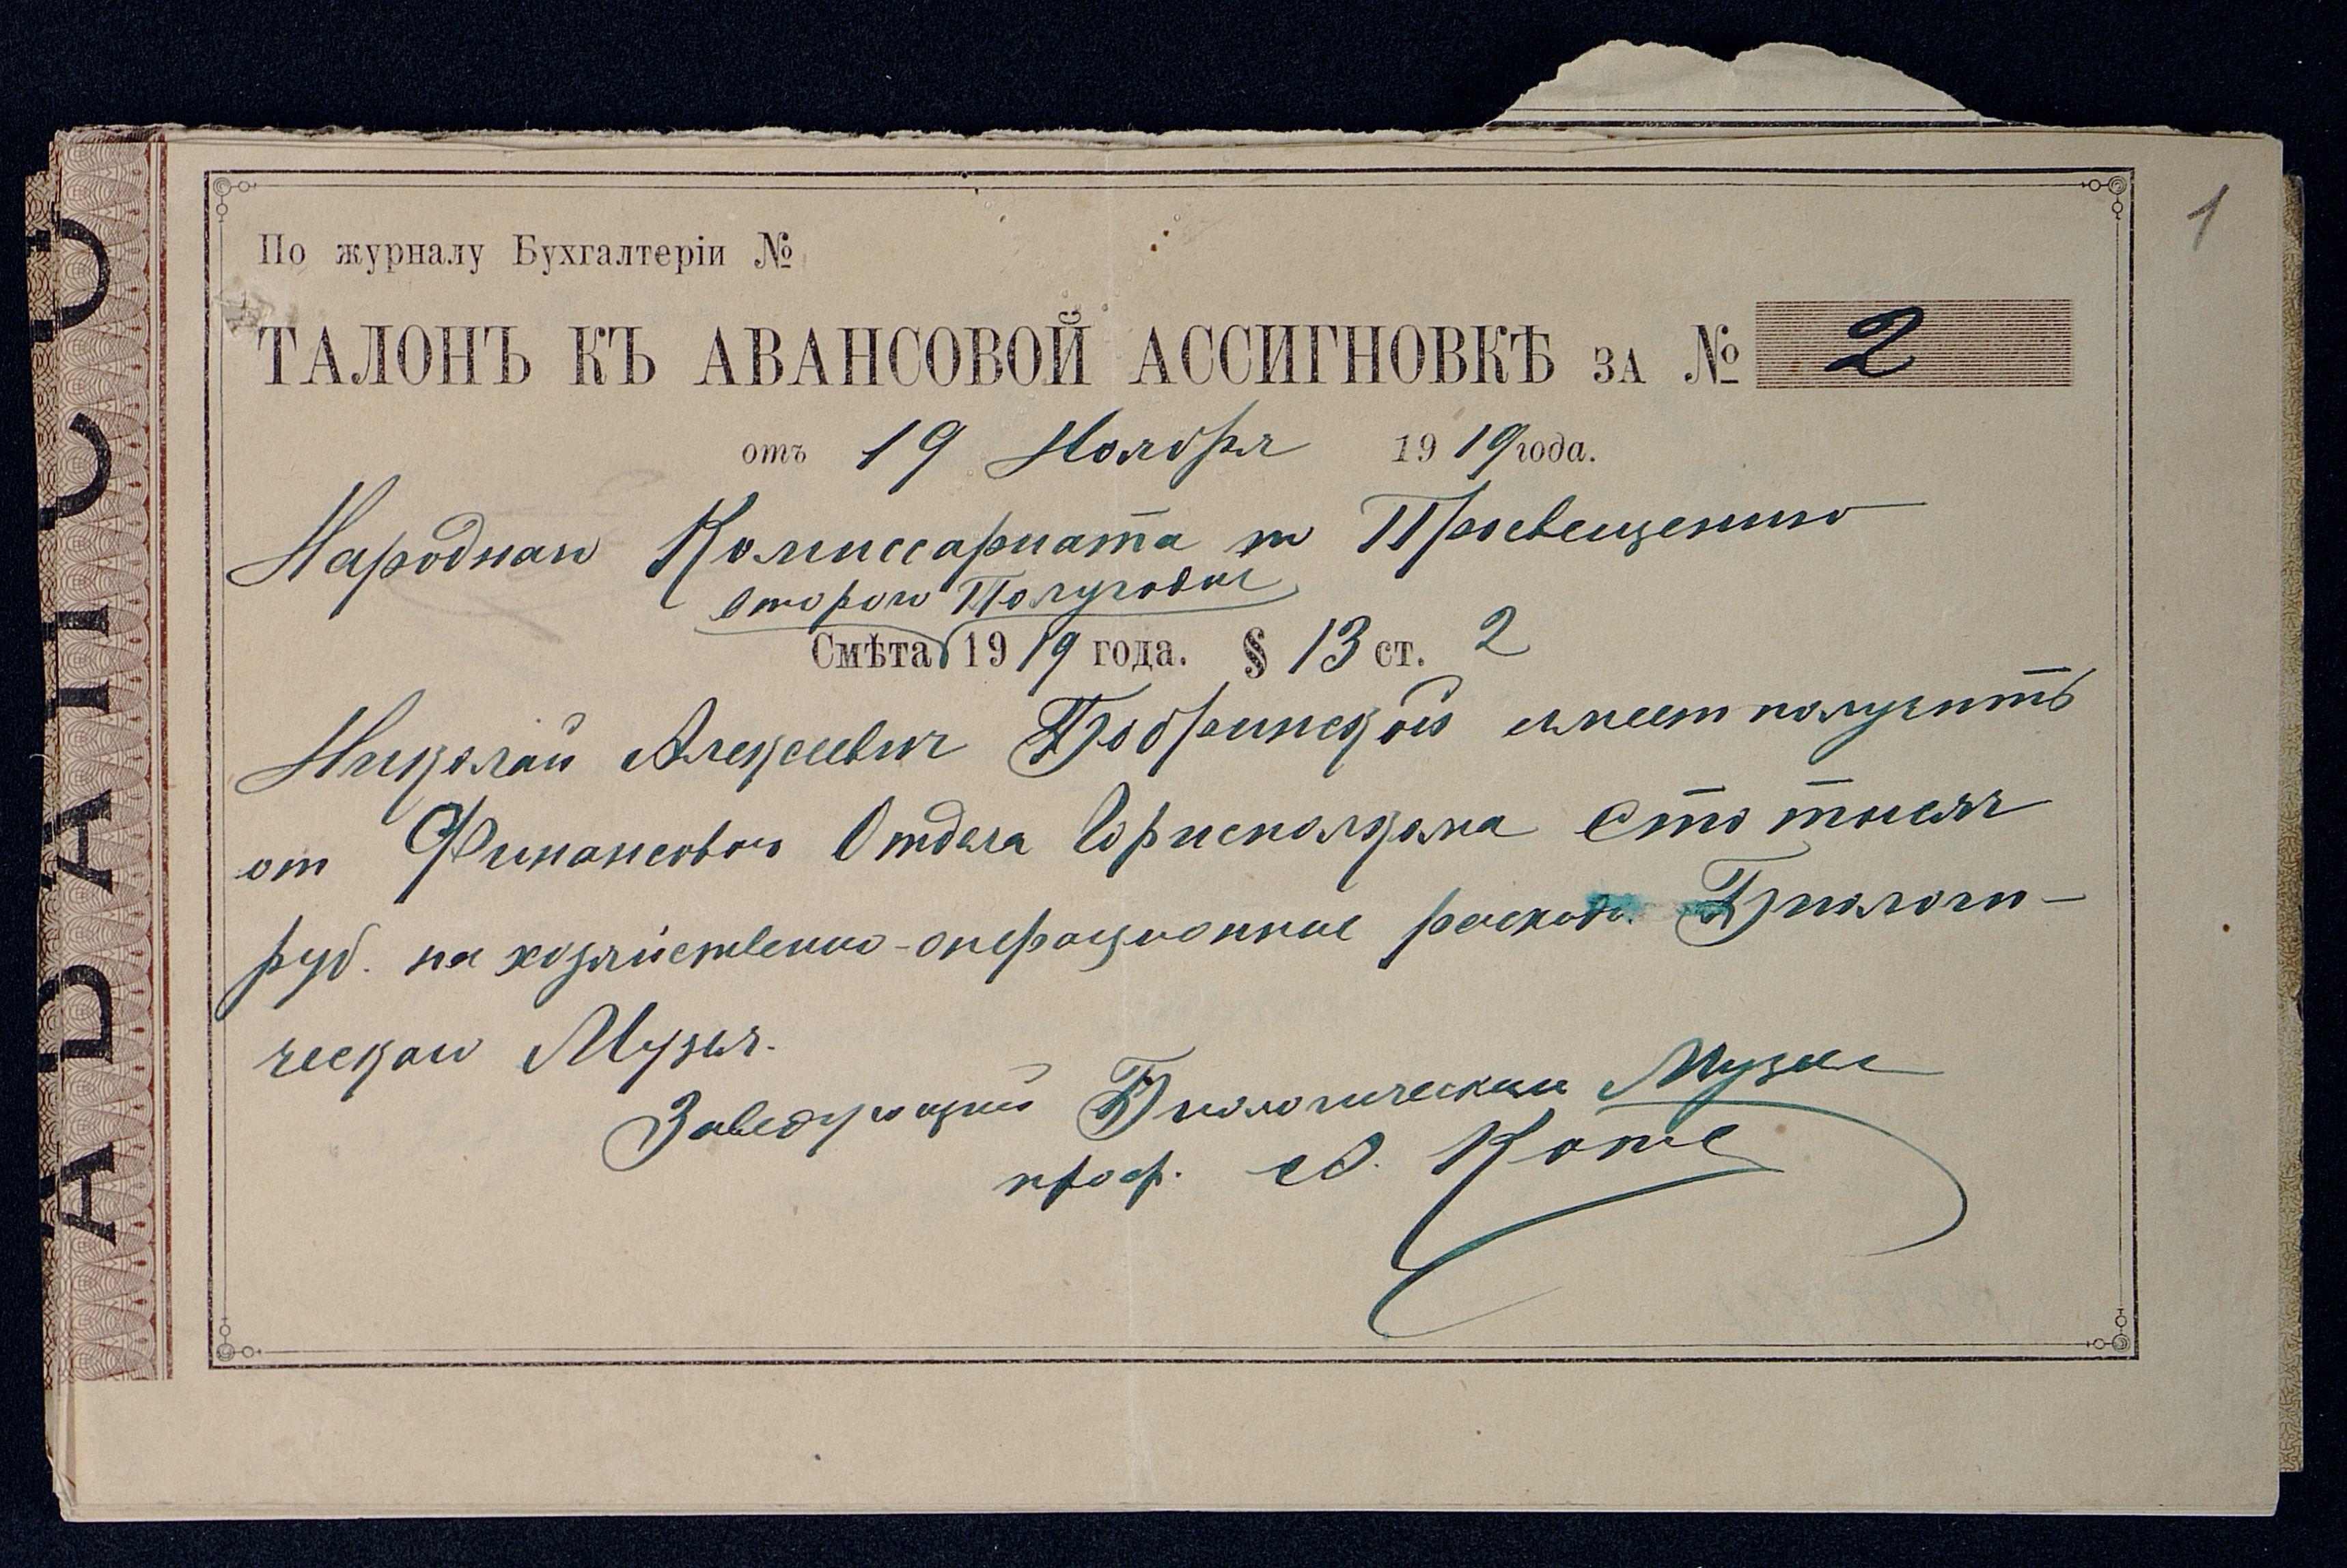 1
По журналу Бухгалтеріи №
ТАЛОНЪ КЪ АВАНСОВОЙ АССИГНОВКѢ ЗА № 2
отъ 19 Ноября 1919 года.
Народнаго Комиссариата по Просвещению
второго Полугодия
Смѣта 1919 года. § 13 ст. 2
Николай Алексеевич Бобринской имеет получить
от Финансового Отдела Горисполкома Сто тысяч
руб. на хозяйственно-операционные расходы Биологи-
ческого Музея.
Заведующий Биологическим Музеем
проф. Котс